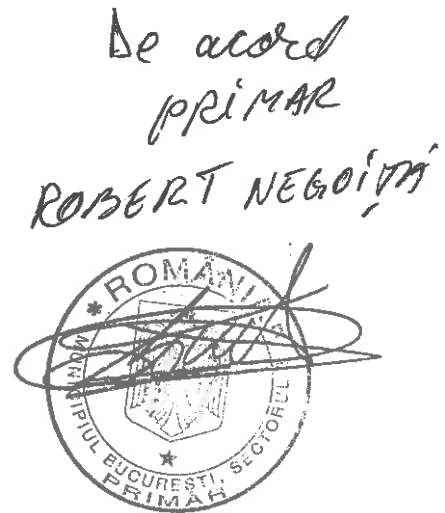 De acord
PRIMAR
ROBERT NEGOIȚĂ
* ROMÂNIA
MUNICIPIUL BUCUREȘTI, SECTORUL
PRIMAR